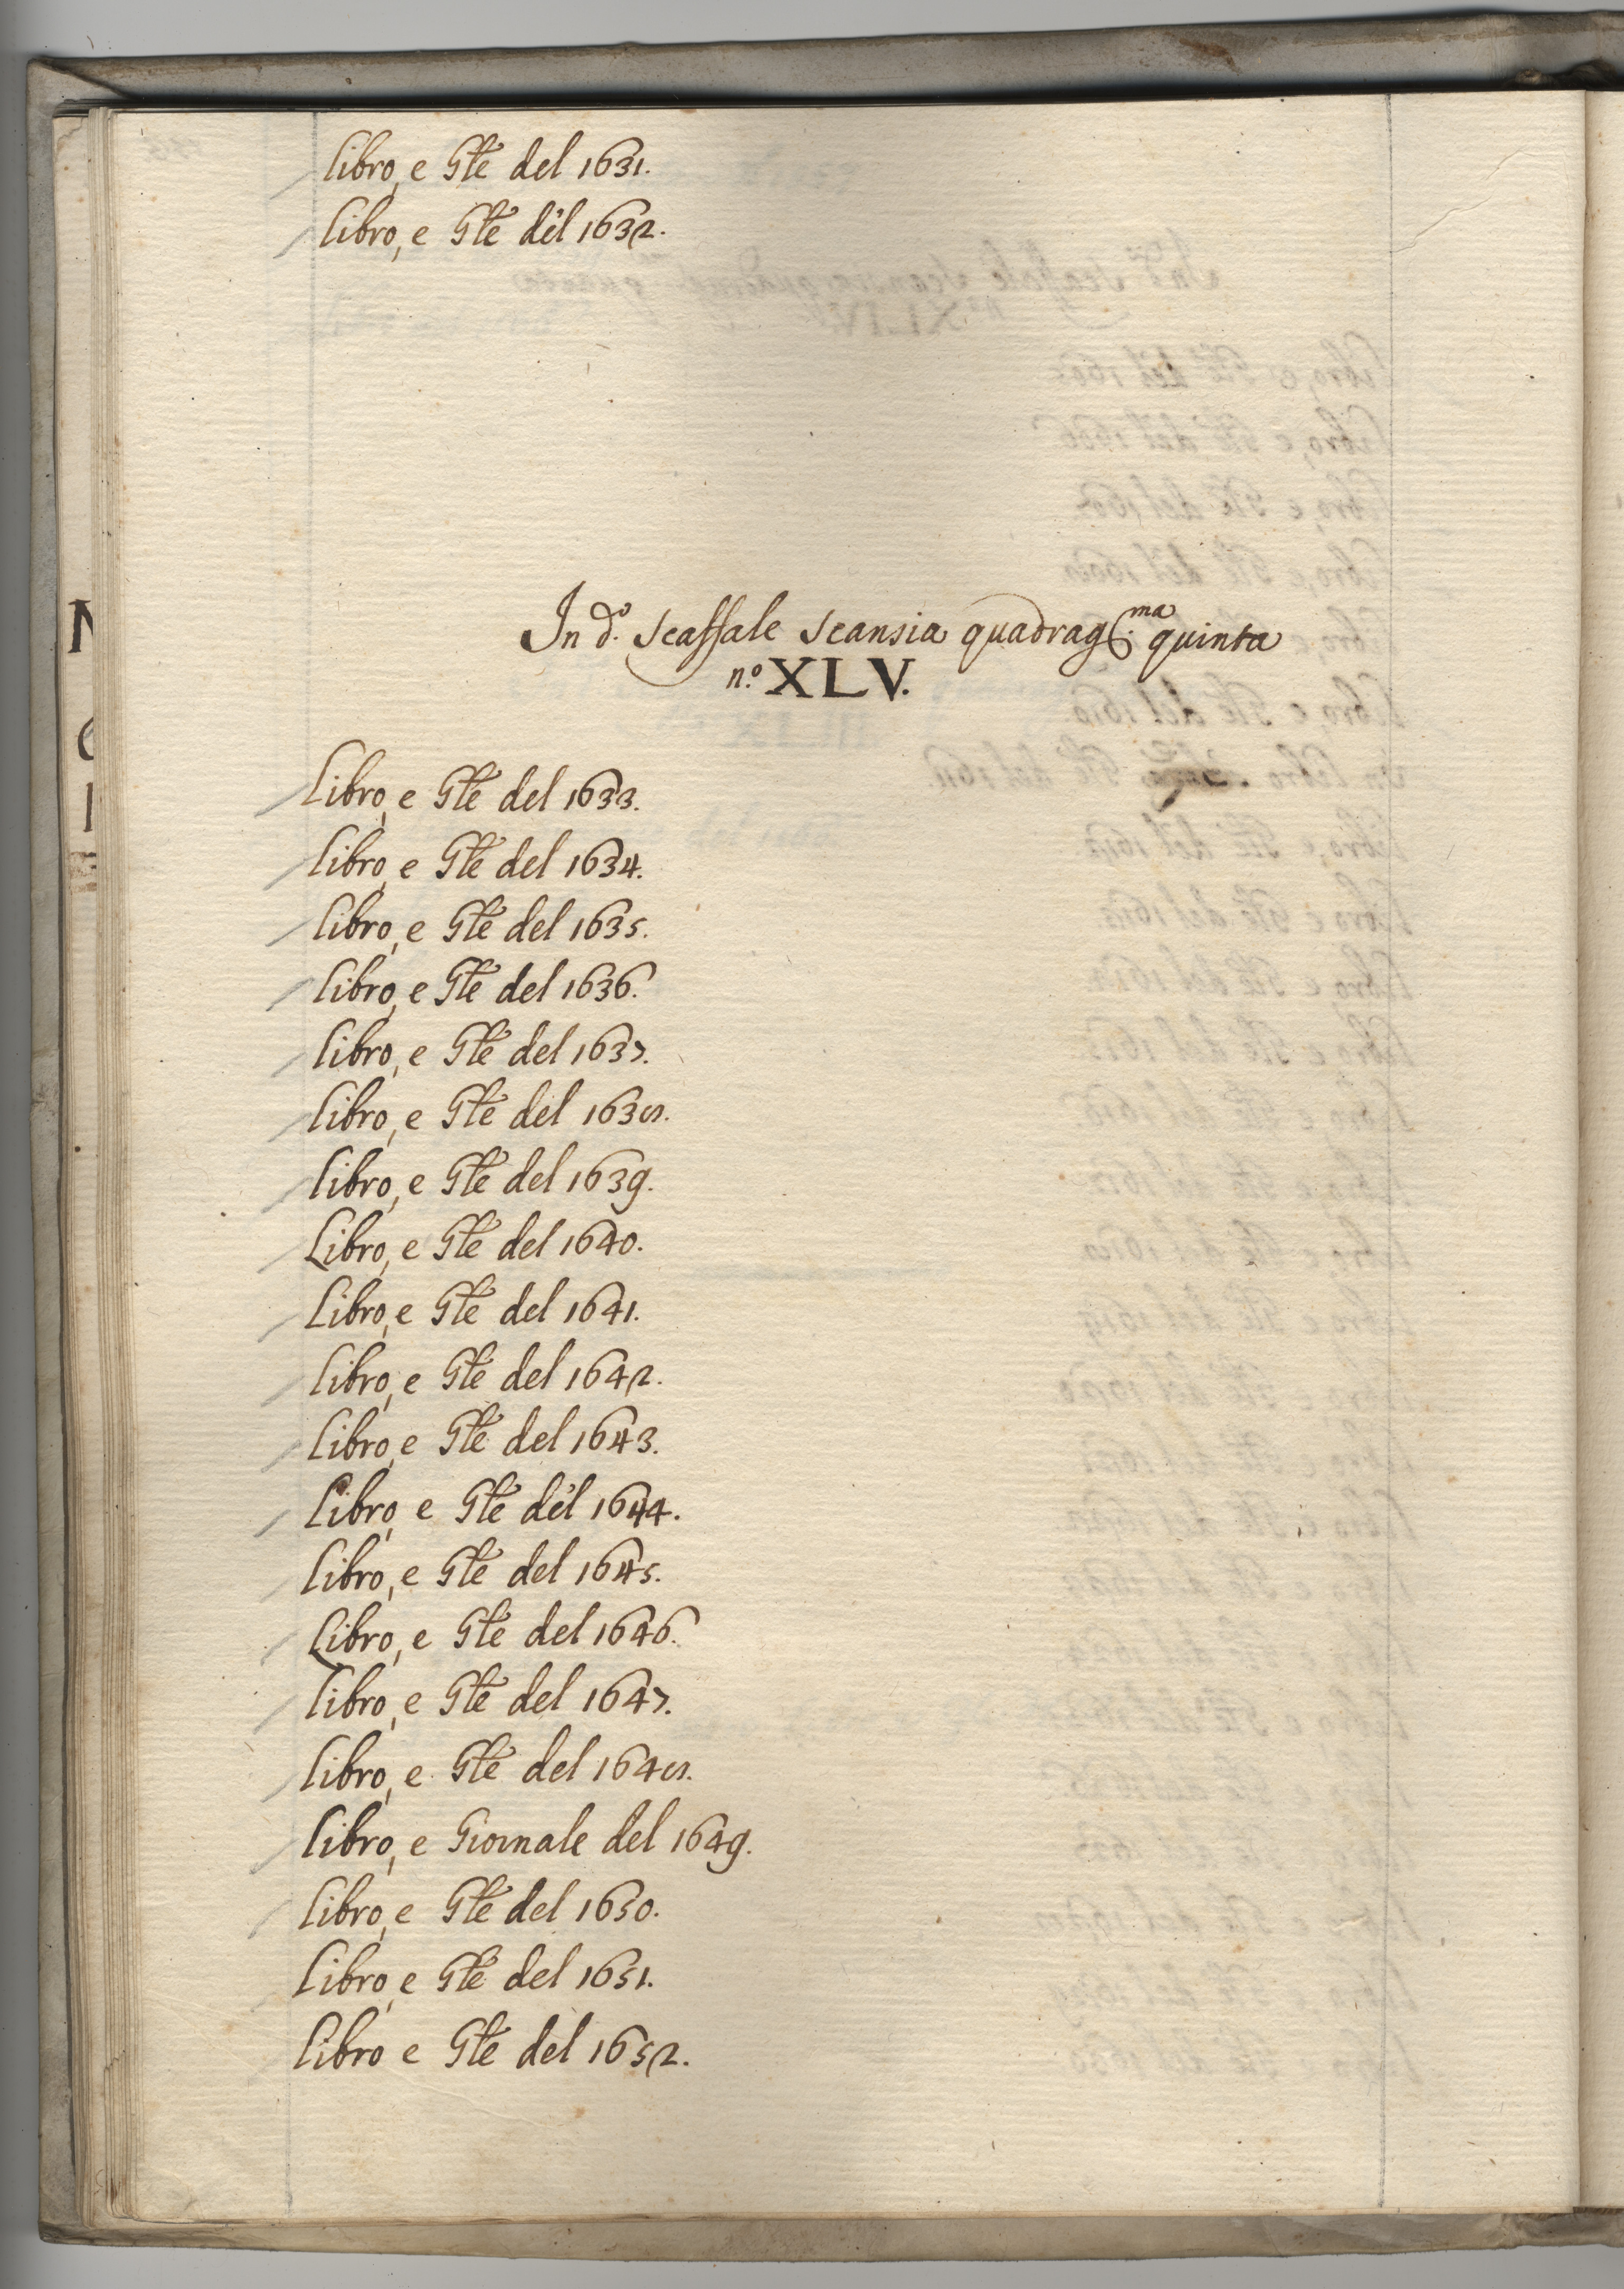 Libro, e Gle del 1631.
Libro, e Gle del 1632.
In d.º scaffale scansia quadrag.ma quinta
n.º XLV.
Libro, e Gle del 1633.
Libro, e Gle del 1634.
Libro, e Gle del 1635.
Libro, e Gle del 1636.
Libro, e Gle del 1637.
Libro, e Gle del 1638.
Libro, e Gle del 1639.
Libro, e Gle del 1640.
Libro, e Gle del 1641.
Libro, e Gle del 1642.
Libro, e Gle del 1643.
Libro, e Gle del 1644.
Libro, e Gle del 1645.
Libro, e Gle del 1646.
Libro, e Gle del 1647.
Libro, e Gle del 1648.
Libro, e Giornale del 1649.
Libro, e Gle del 1650.
Libro, e Gle del 1651.
Libro e Gle del 1652.